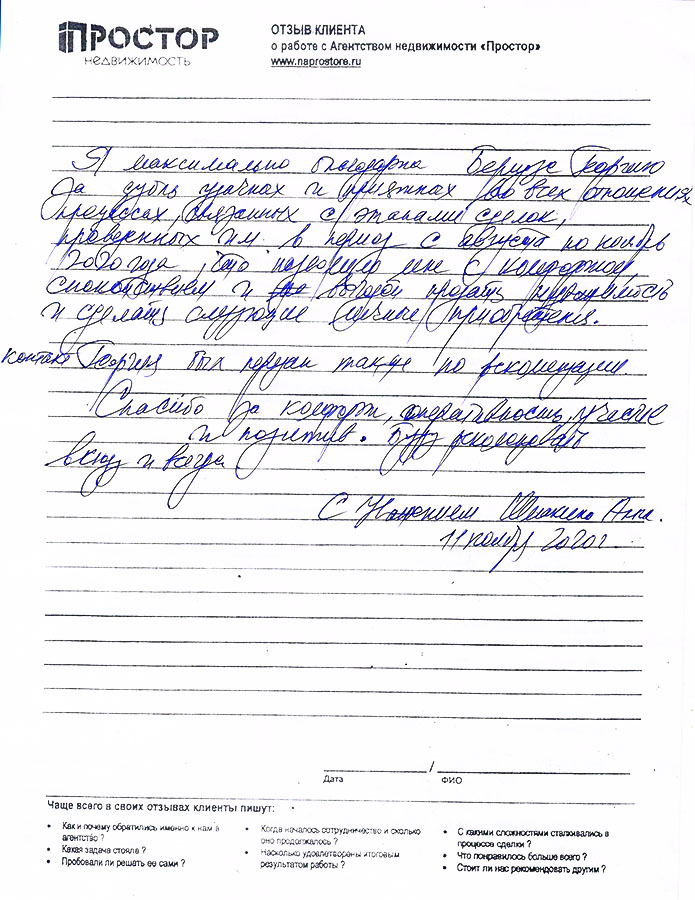 ПРОСТОР
НЕДВИЖИМОСТЬ
ОТЗЫВ КЛИЕНТА
о работе с Агентством недвижимости «Простор»
www.naprostore.ru
Я максимально благодарна Георгию
за и приятных во всех отношениях
процессах, связанных с этапами сделок,
проведенных им в период с августа по ноябрь
2020 года, что позволило мне с комфортом,
спокойствием и выгодой продать недвижимость
и сделать следующие личные приобретения.
контакт Георгия был передан также по рекомендации
Спасибо за комфорт, оперативность, участие
и позитив. Буду рекомендовать
всегда
С Уважением Анна.
11 ноября 2020г.
Дата / ФИО
Чаще всего в своих отзывах клиенты пишут:
• Как и почему обратились именно к нам в
агентство ?
• Какая задача стояла ?
• Пробовали ли решать ее сами ?
• Когда началось сотрудничество и сколько
оно продолжалось ?
• Насколько удовлетворены итоговым
результатом работы ?
• С какими сложностями сталкивались в
процессе сделки ?
• Что понравилось больше всего ?
• Стоит ли нас рекомендовать другим ?